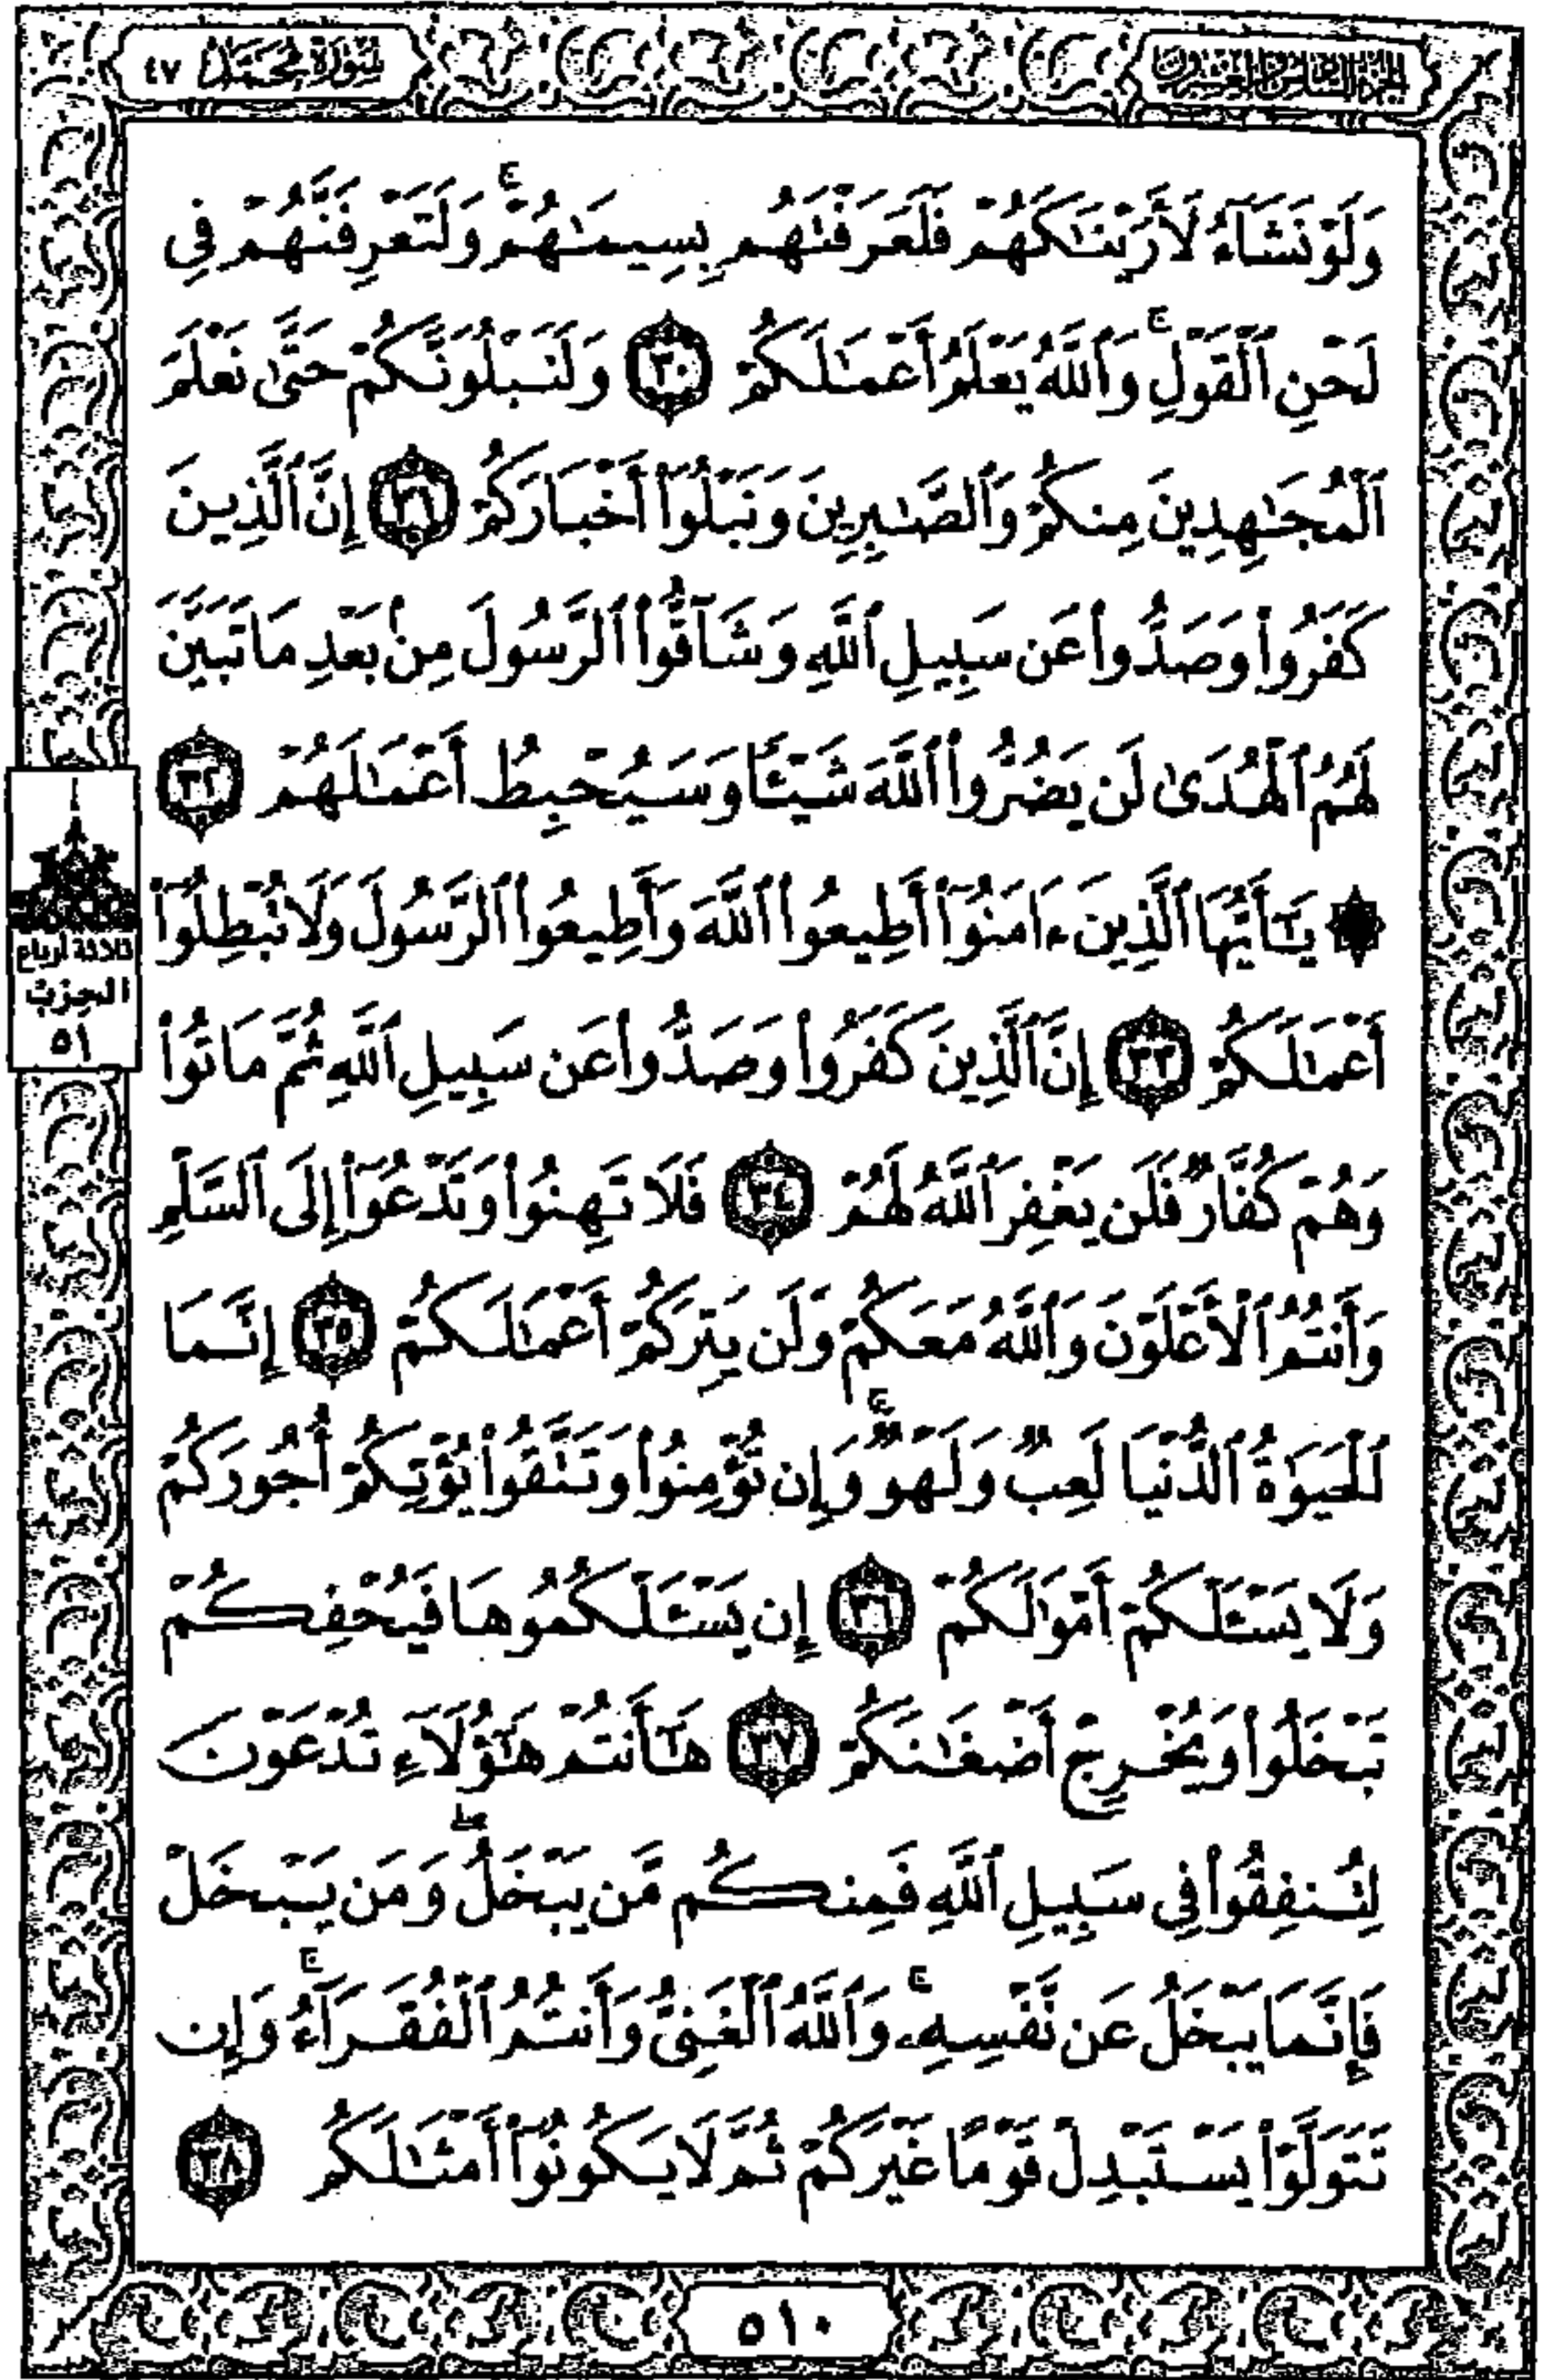 الجزء السادس والعشرون
سورة محمد ٤٧
وَلَوْ نَشَآءُ لَأَرَيْنَٰكَهُمْ فَلَعَرَفْتَهُم بِسِيمَٰهُمْ ۚ وَلَتَعْرِفَنَّهُمْ فِى
لَحْنِ ٱلْقَوْلِ ۚ وَٱللَّهُ يَعْلَمُ أَعْمَٰلَكُمْ ٣٠ وَلَنَبْلُوَنَّكُمْ حَتَّىٰ نَعْلَمَ
ٱلْمُجَٰهِدِينَ مِنكُمْ وَٱلصَّٰبِرِينَ وَنَبْلُوَا۟ أَخْبَارَكُمْ ٣١ إِنَّ ٱلَّذِينَ
كَفَرُوا۟ وَصَدُّوا۟ عَن سَبِيلِ ٱللَّهِ وَشَآقُّوا۟ ٱلرَّسُولَ مِنۢ بَعْدِ مَا تَبَيَّنَ
لَهُمُ ٱلْهُدَىٰ لَن يَضُرُّوا۟ ٱللَّهَ شَيْـًٔا وَسَيُحْبِطُ أَعْمَٰلَهُمْ ٣٢
۞ يَٰٓأَيُّهَا ٱلَّذِينَ ءَامَنُوٓا۟ أَطِيعُوا۟ ٱللَّهَ وَأَطِيعُوا۟ ٱلرَّسُولَ وَلَا تُبْطِلُوٓا۟
أَعْمَٰلَكُمْ ٣٣ إِنَّ ٱلَّذِينَ كَفَرُوا۟ وَصَدُّوا۟ عَن سَبِيلِ ٱللَّهِ ثُمَّ مَاتُوا۟
وَهُمْ كُفَّارٌ فَلَن يَغْفِرَ ٱللَّهُ لَهُمْ ٣٤ فَلَا تَهِنُوا۟ وَتَدْعُوٓا۟ إِلَى ٱلسَّلْمِ
وَأَنتُمُ ٱلْأَعْلَوْنَ وَٱللَّهُ مَعَكُمْ وَلَن يَتِرَكُمْ أَعْمَٰلَكُمْ ٣٥ إِنَّمَا
ٱلْحَيَوٰةُ ٱلدُّنْيَا لَعِبٌ وَلَهْوٌ ۚ وَإِن تُؤْمِنُوا۟ وَتَتَّقُوا۟ يُؤْتِكُمْ أُجُورَكُمْ
وَلَا يَسْـَٔلْكُمْ أَمْوَٰلَكُمْ ٣٦ إِن يَسْـَٔلْكُمُوهَا فَيُحْفِكُمْ
تَبْخَلُوا۟ وَيُخْرِجْ أَضْغَٰنَكُمْ ٣٧ هَٰٓأَنتُمْ هَٰٓؤُلَآءِ تُدْعَوْنَ
لِتُنفِقُوا۟ فِى سَبِيلِ ٱللَّهِ فَمِنكُم مَّن يَبْخَلُ ۖ وَمَن يَبْخَلْ
فَإِنَّمَا يَبْخَلُ عَن نَّفْسِهِۦ ۚ وَٱللَّهُ ٱلْغَنِىُّ وَأَنتُمُ ٱلْفُقَرَآءُ ۚ وَإِن
تَتَوَلَّوْا۟ يَسْتَبْدِلْ قَوْمًا غَيْرَكُمْ ثُمَّ لَا يَكُونُوٓا۟ أَمْثَٰلَكُم ٣٨
ثلاثة أرباع
الحزب
٥١
٥١٠